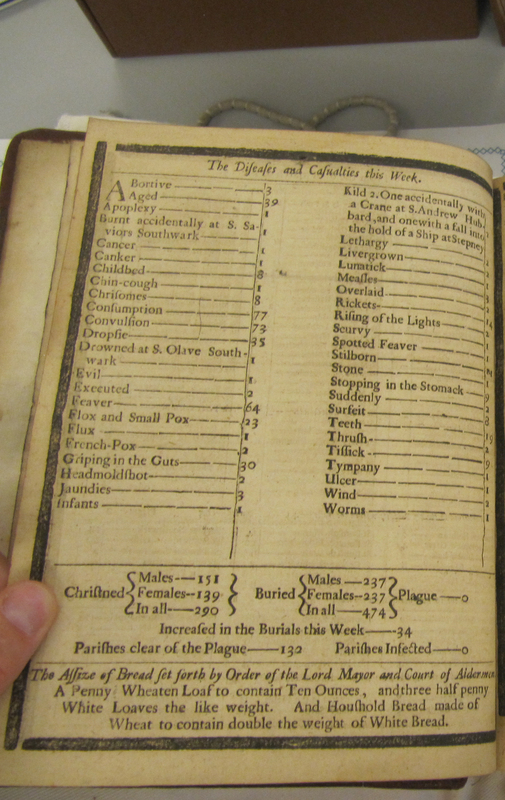 The Diseases and Casualties this Week.
ABortive 3
Aged 39
Apoplexy 1
Burnt accidentally at S. Sa-
viors Southwark 1
Cancer 1
Canker 1
Childbed 8
Chin-cough 1
Chrisomes 8
Consumption 77
Convulsion 73
Dropsie 35
Drowned at S. Olave South-
wark 1
Evil 1
Executed 2
Feaver 64
Flox and Small Pox 23
Flux 1
French-Pox 2
Griping in the Guts 30
Headmoldshot 2
Jaundies 3
Infants 1
Kild 2. One accidentally with
a Crane at S. Andrew Hub-
bard, and one with a fall into
the hold of a Ship at Stepney
Lethargy
Livergrown
Lunatick
Measles
Overlaid
Rickets
Rising of the Lights
Scurvy
Spotted Feaver
Stilborn
Stone
Stopping in the Stomack
Suddenly
Surfeit
Teeth
Thrush
Tissick
Tympany
Ulcer
Wind 2
Worms 1
Christned Males 151 Females 139 In all 290 Buried Males 237 Females 237 In all 474 Plague 0
Increased in the Burials this Week 34
Parishes clear of the Plague 132 Parishes Infected 0
The Assize of Bread set forth by Order of the Lord Mayor and Court of Aldermen
A Penny Wheaten Loaf to contain Ten Ounces, and three half penny
White Loaves the like weight. And Houshold Bread made of
Wheat to contain double the weight of White Bread.